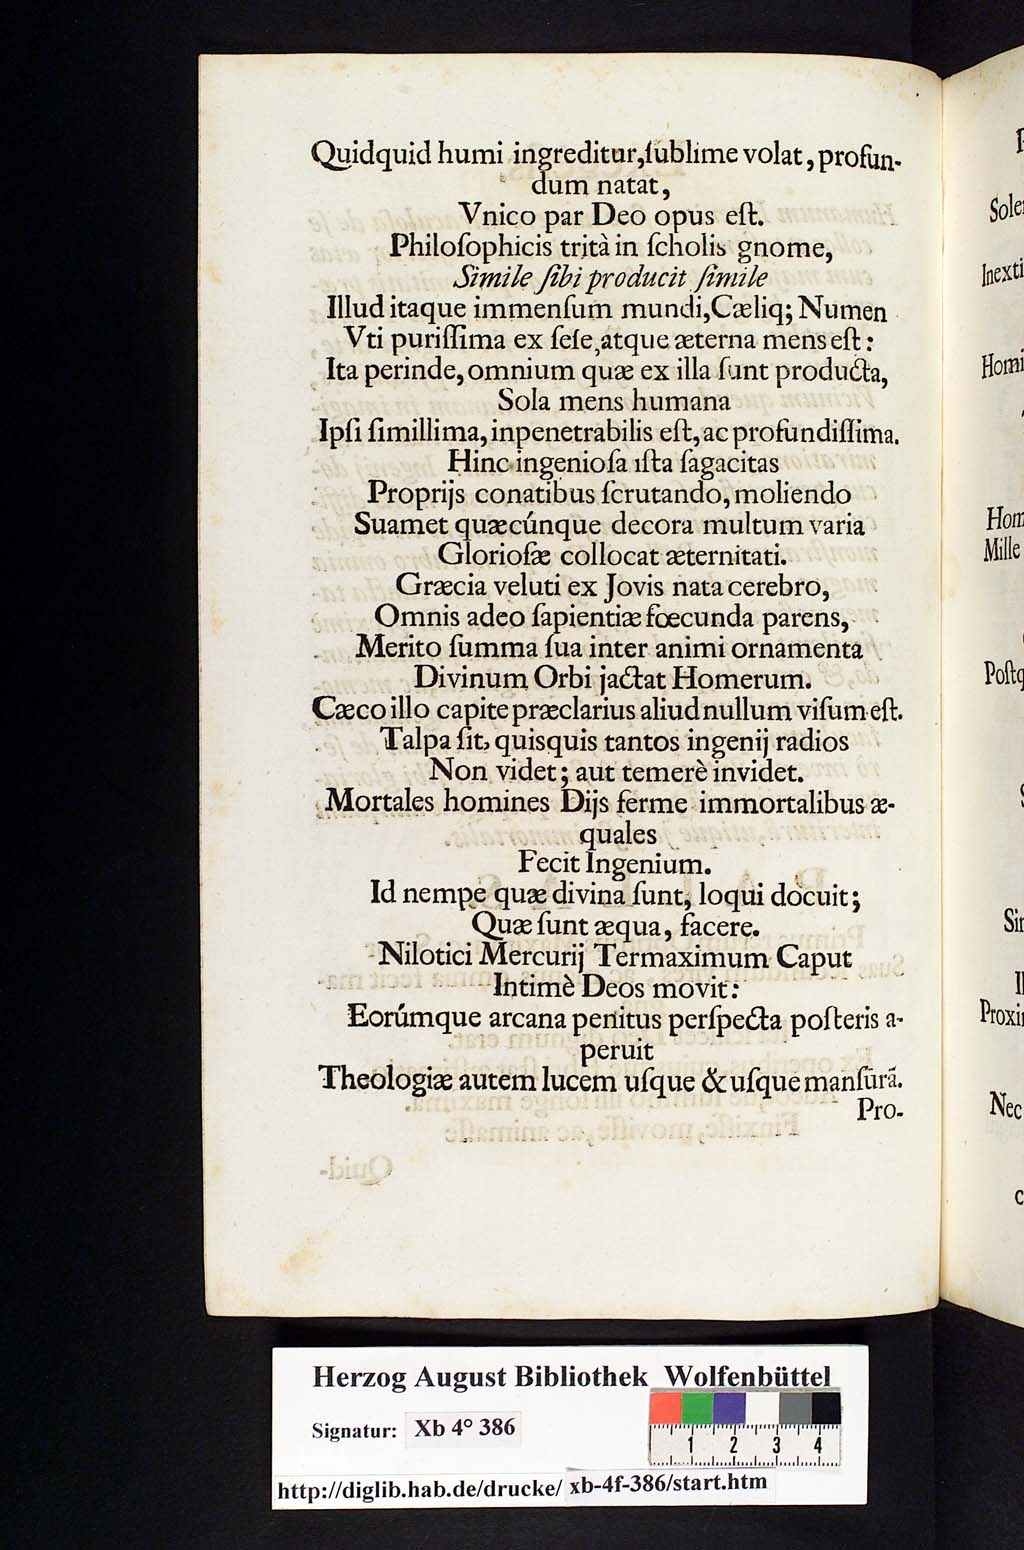 Quidquid humi ingreditur, ſublime volat, profun-
dum natat,
Vnico par Deo opus eſt.
Philoſophicis tritâ in ſcholis gnome,
Simile ſibi producit ſimile
Illud itaque immenſum mundi, Cæliq; Numen
Vti puriſſima ex ſeſe, atque æterna mens eſt:
Ita perinde, omnium quæ ex illa ſunt producta,
Sola mens humana
Ipſi ſimillima, inpenetrabilis eſt, ac profundiſſima.
Hinc ingenioſa iſta ſagacitas
Proprijs conatibus ſcrutando, moliendo
Suamet quæcúnque decora multum varia
Glorioſæ collocat æternitati.
Græcia veluti ex Jovis nata cerebro,
Omnis adeo ſapientiæ fœcunda parens,
Merito ſumma ſua inter animi ornamenta
Divinum Orbi jactat Homerum.
Cæco illo capite præclarius aliud nullum viſum eſt.
Talpa ſit, quisquis tantos ingenij radios
Non videt; aut temerè invidet.
Mortales homines Dijs ferme immortalibus æ-
quales
Fecit Ingenium.
Id nempe quæ divina ſunt, loqui docuit;
Quæ ſunt æqua, facere.
Nilotici Mercurij Termaximum Caput
Intimè Deos movit:
Eorúmque arcana penitus perſpecta poſteris a-
peruit
Theologiæ autem lucem uſque & uſque manſurã.
Pro-
Quid-
Sole
Inexti
Homi
Hom
Mille
Poſtq
Sin
Il
Proxi
Nec
Herzog August Bibliothek Wolfenbüttel
Signatur: Xb 4° 386
1 2 3 4
http://diglib.hab.de/drucke/ xb-4f-386/start.htm